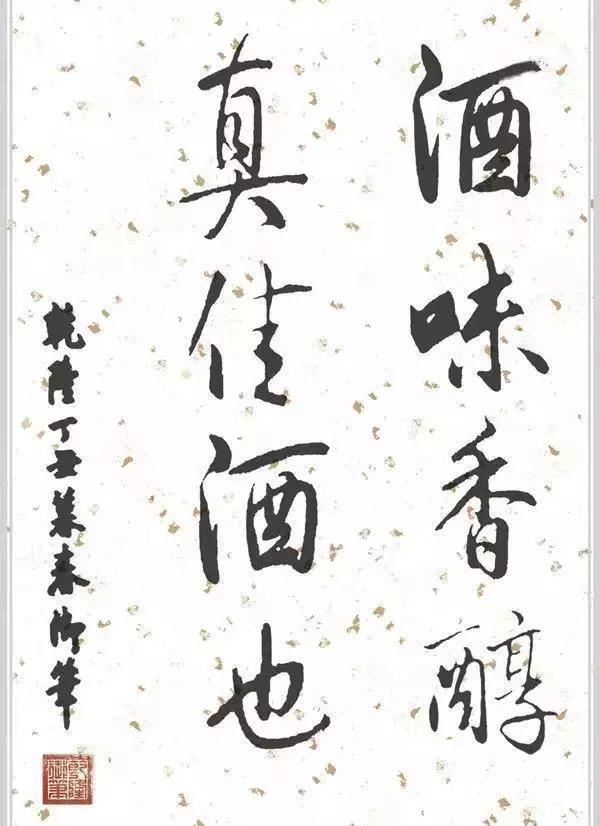 酒味香醇
真佳酒也
乾隆丁丑暮春御筆
乾隆御筆